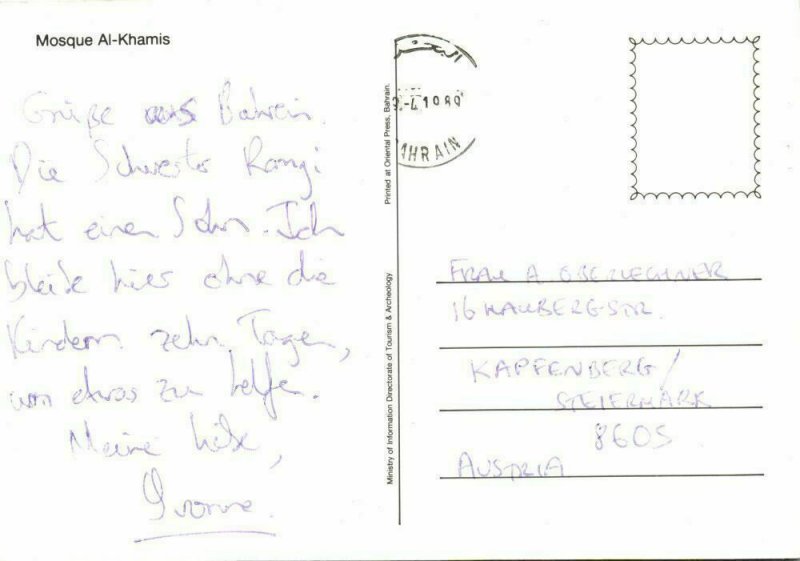 Mosque Al-Khamis
Grüße aus Bahrein.
Die Schwester
hat einen Sohn. Ich
bleibe hier ohne die
Kindern zehn Tagen,
um etwas zu helfen.
Meine Liebe,
Yvonne.
Printed at Oriental Press, Bahrain.
Ministry of Information Directorate of Tourism & Archeology
-4.1989
AHRAIN
FRAU A. OBERLECHNER
16
KAPFENBERG/
STEIERMARK
8605
AUSTRIA